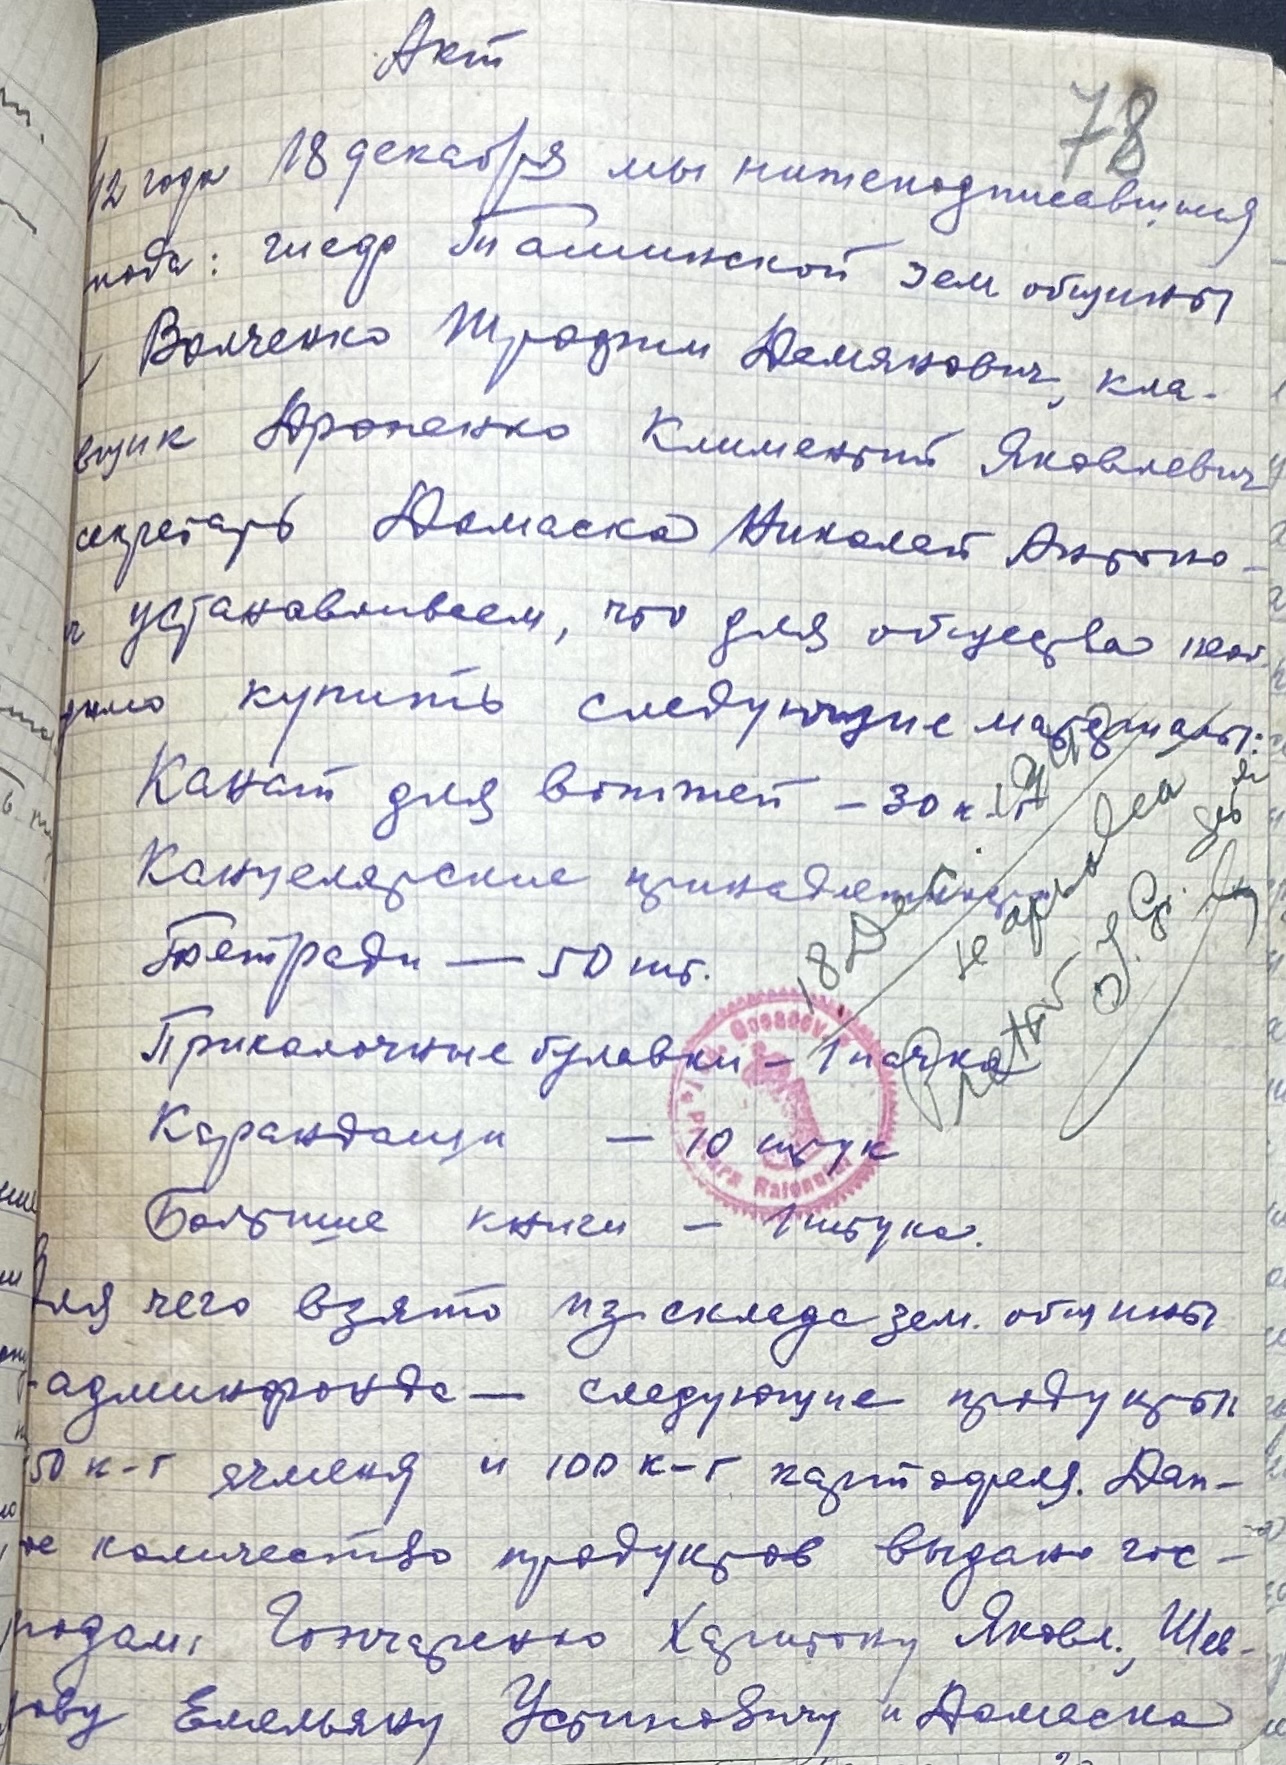 Акт
78
42 года 18 декабря мы нижеподписавшиеся
Таминской зем общины
Волченко Трофим Демянович, кла-
вщик Дроненко Климентий Яковлевич
секретарь Домаска Николай Антоно-
ч устанавливаем, что для общества необ
димо купить следующие материалы:
Канат для вожжей – 30 к-г
Канцелярские принадлежности
Тетради — 50 шт.
Приколочные булавки – 1 пачка
Карандаши – 10 штук
Большие книги – 1 штука.
Для чего взято из склада зем. общины
админфонда — следующие продукты
50 к-г ячменя и 100 к-г картофеля. Дан-
ое количество продуктов выдано гос-
подам: Гончаренко Харитону Яковл., Шев-
Емельяну Устиновичу и Домаска
18 Dec.
se aproba
Pretor